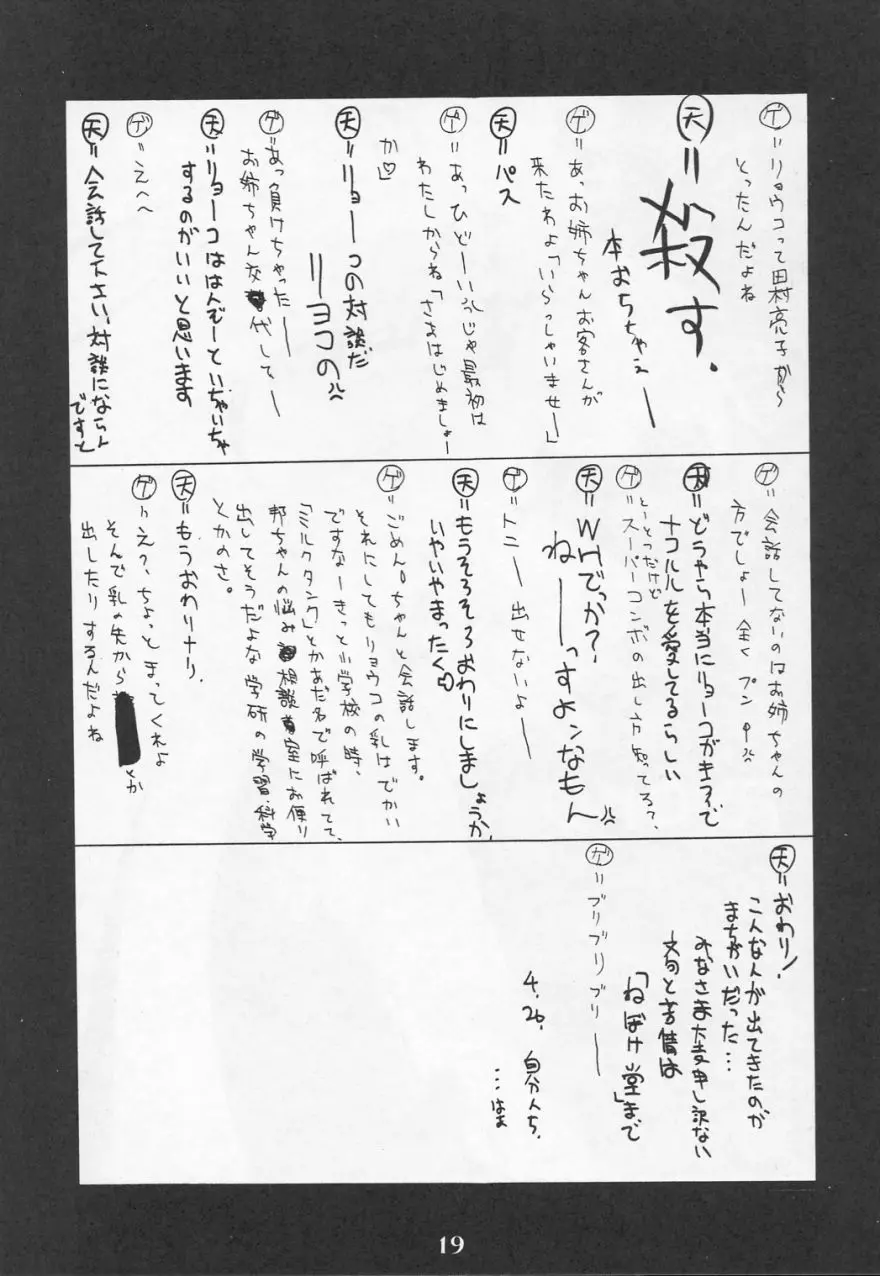 ゲ=リョウコって田村亮子から
とったんだよね
天=殺す.
本おちちゃえー
ゲ=あっお姉ちゃんお客さんが
来たわよ「いらっしゃいませー」
天=パス
ゲ=あっひどーい
じゃ最初は
わたしからね「さあはじめましょー
か♡」
天=リョーコの対談だ
リーヨコの
ゲ=あっ負けちゃったー
お姉ちゃん交代してー
天=リョーコははんぞーといちゃいちゃ
するのがいいと思います
ゲ=えへへ
天=会話して下さい、対談にならよ
ですと
ゲ=会話してないのはお姉ちゃんの
方でしょー全くプンプン
天=どうやら本当にリョーコがきらいで
ナコルルを愛してるらしい
ゲ=とーとつだけど
スーパーコンボの出し方知ってろ?、
天=WHでっか?、
ねーーっすよンなもん
ゲ=トニー出せないよー
天=もうそろそろおわりにしましょうか、
いやいやまったく
ゲ=ごめん。ちゃんと会話します。
それにしてもリョウコの乳はでかい
ですなーきっと小学校の時、
「ミルクタンク」とかあだ名で呼ばれてて、
邦ちゃんの悩み相談室にお便り
出してそうだよな学研の学習・科学
とかのさ。
天=もうおわりナリ.
ゲ=え?、ちょっとまってくれよ
そんで乳の先から とか
出したりするんだよね
天=おわりノ、
こんな人が出てきたのが
まちがいだった…
みなさま大変申し訳ない
文句と苦情は
「ねぼけ堂」まで
ゲ=ブリブリブリー
4.26. 自分んち.
…はあ
19